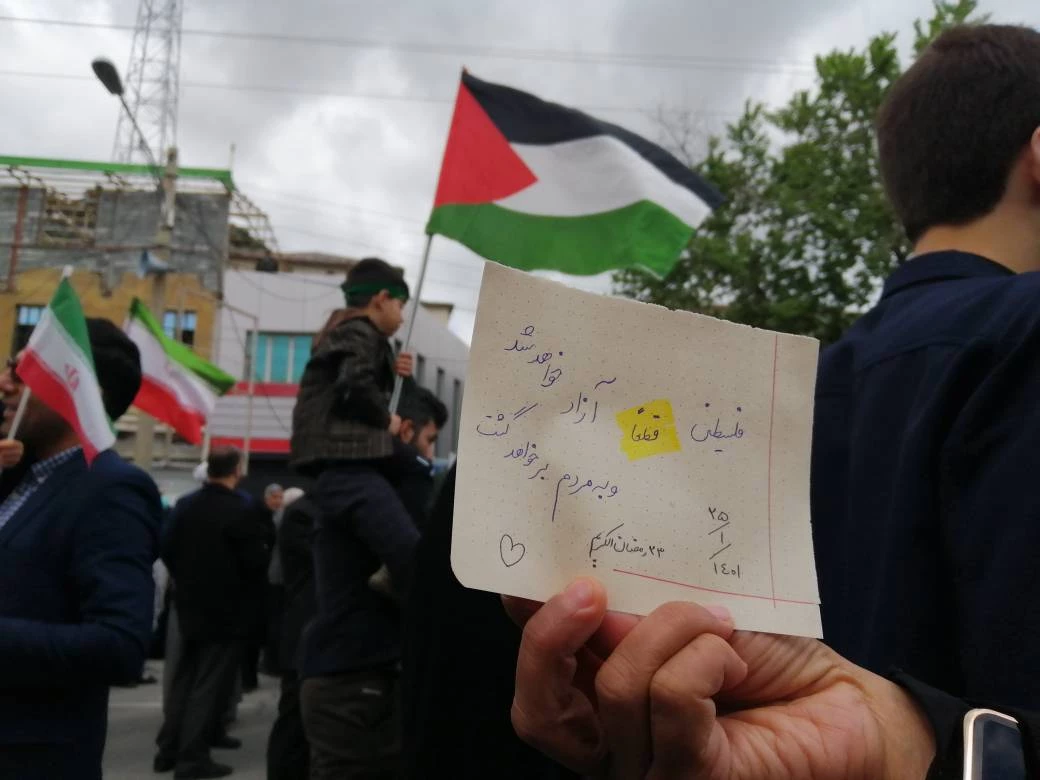 فلسطین قطعاً آزاد خواهد شد
و به مردم بر خواهد گشت
۲۵/۱/۱۴۰۱
۲۳ رمضان الکریم